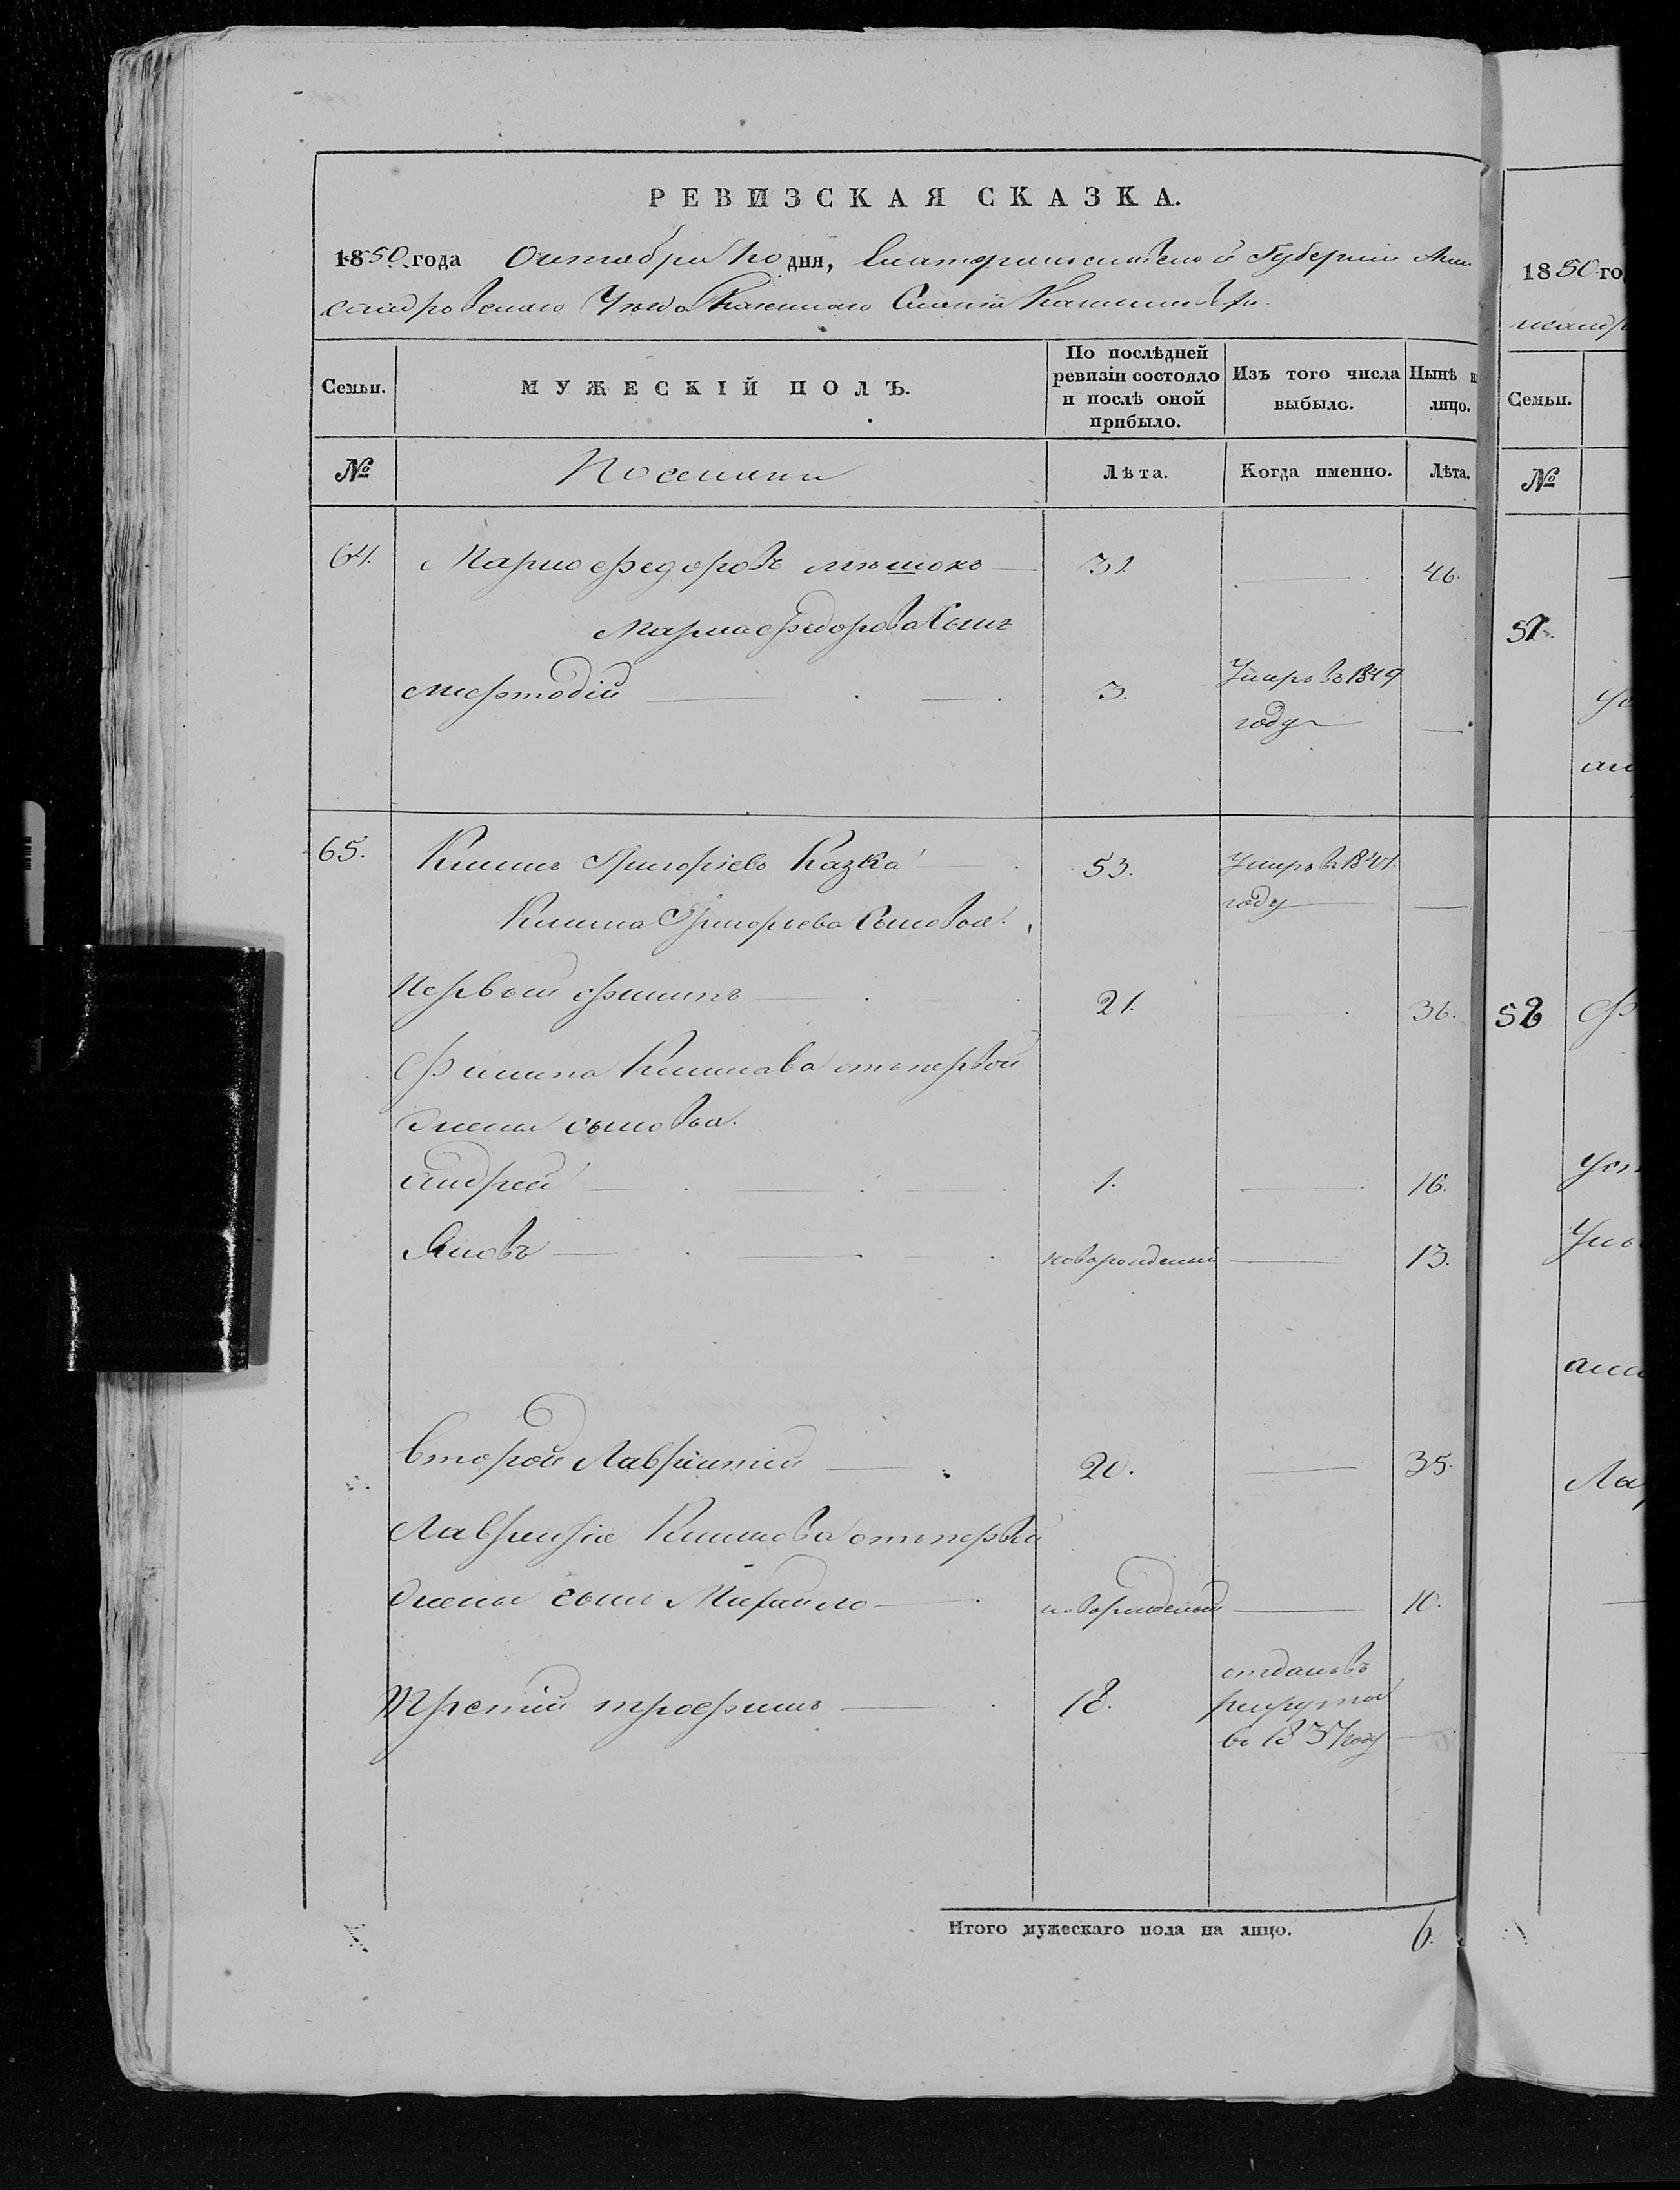 РЕВИЗСКАЯ СКАЗКА.
1850 года Октября дня, Екатеринославской Губернии Алек
сандровскаго Уезда Казеннаго Селенія
Семьи.
МУЖЕСКІЙ ПОЛЪ.
По послѣдней ревизіи состояло и послѣ оной прибыло.
Изъ того числа выбыло.
Нынѣ н лицо.
№
Поселяни
Лѣта.
Когда именно.
Лѣта.
64. Марко Федоровъ мѣшокъ 31 46.
Марка Федорова Сынъ
Мефтодій 3. Умеръ въ 1849
году
65. Климъ Григоріевъ Казка 53. Умеръ в 1847.
году
Клима Григорьева Сыновья.
Первый Филипъ 21. 36.
Филипа Климава отъ первой
жены сыновья.
Андрей 1. 16.
Яковъ новорожденый 13.
Второй Лаврентій 20. 35.
Лаврентія Климова отъ первой
жены сынъ Михайло новорожденый 10.
Третій трофимъ 18. отданъ въ
рекруты
в 1837 году
Итого мужескаго пола на лицо. 6.
1850 го
Семьи.
№
57.
58